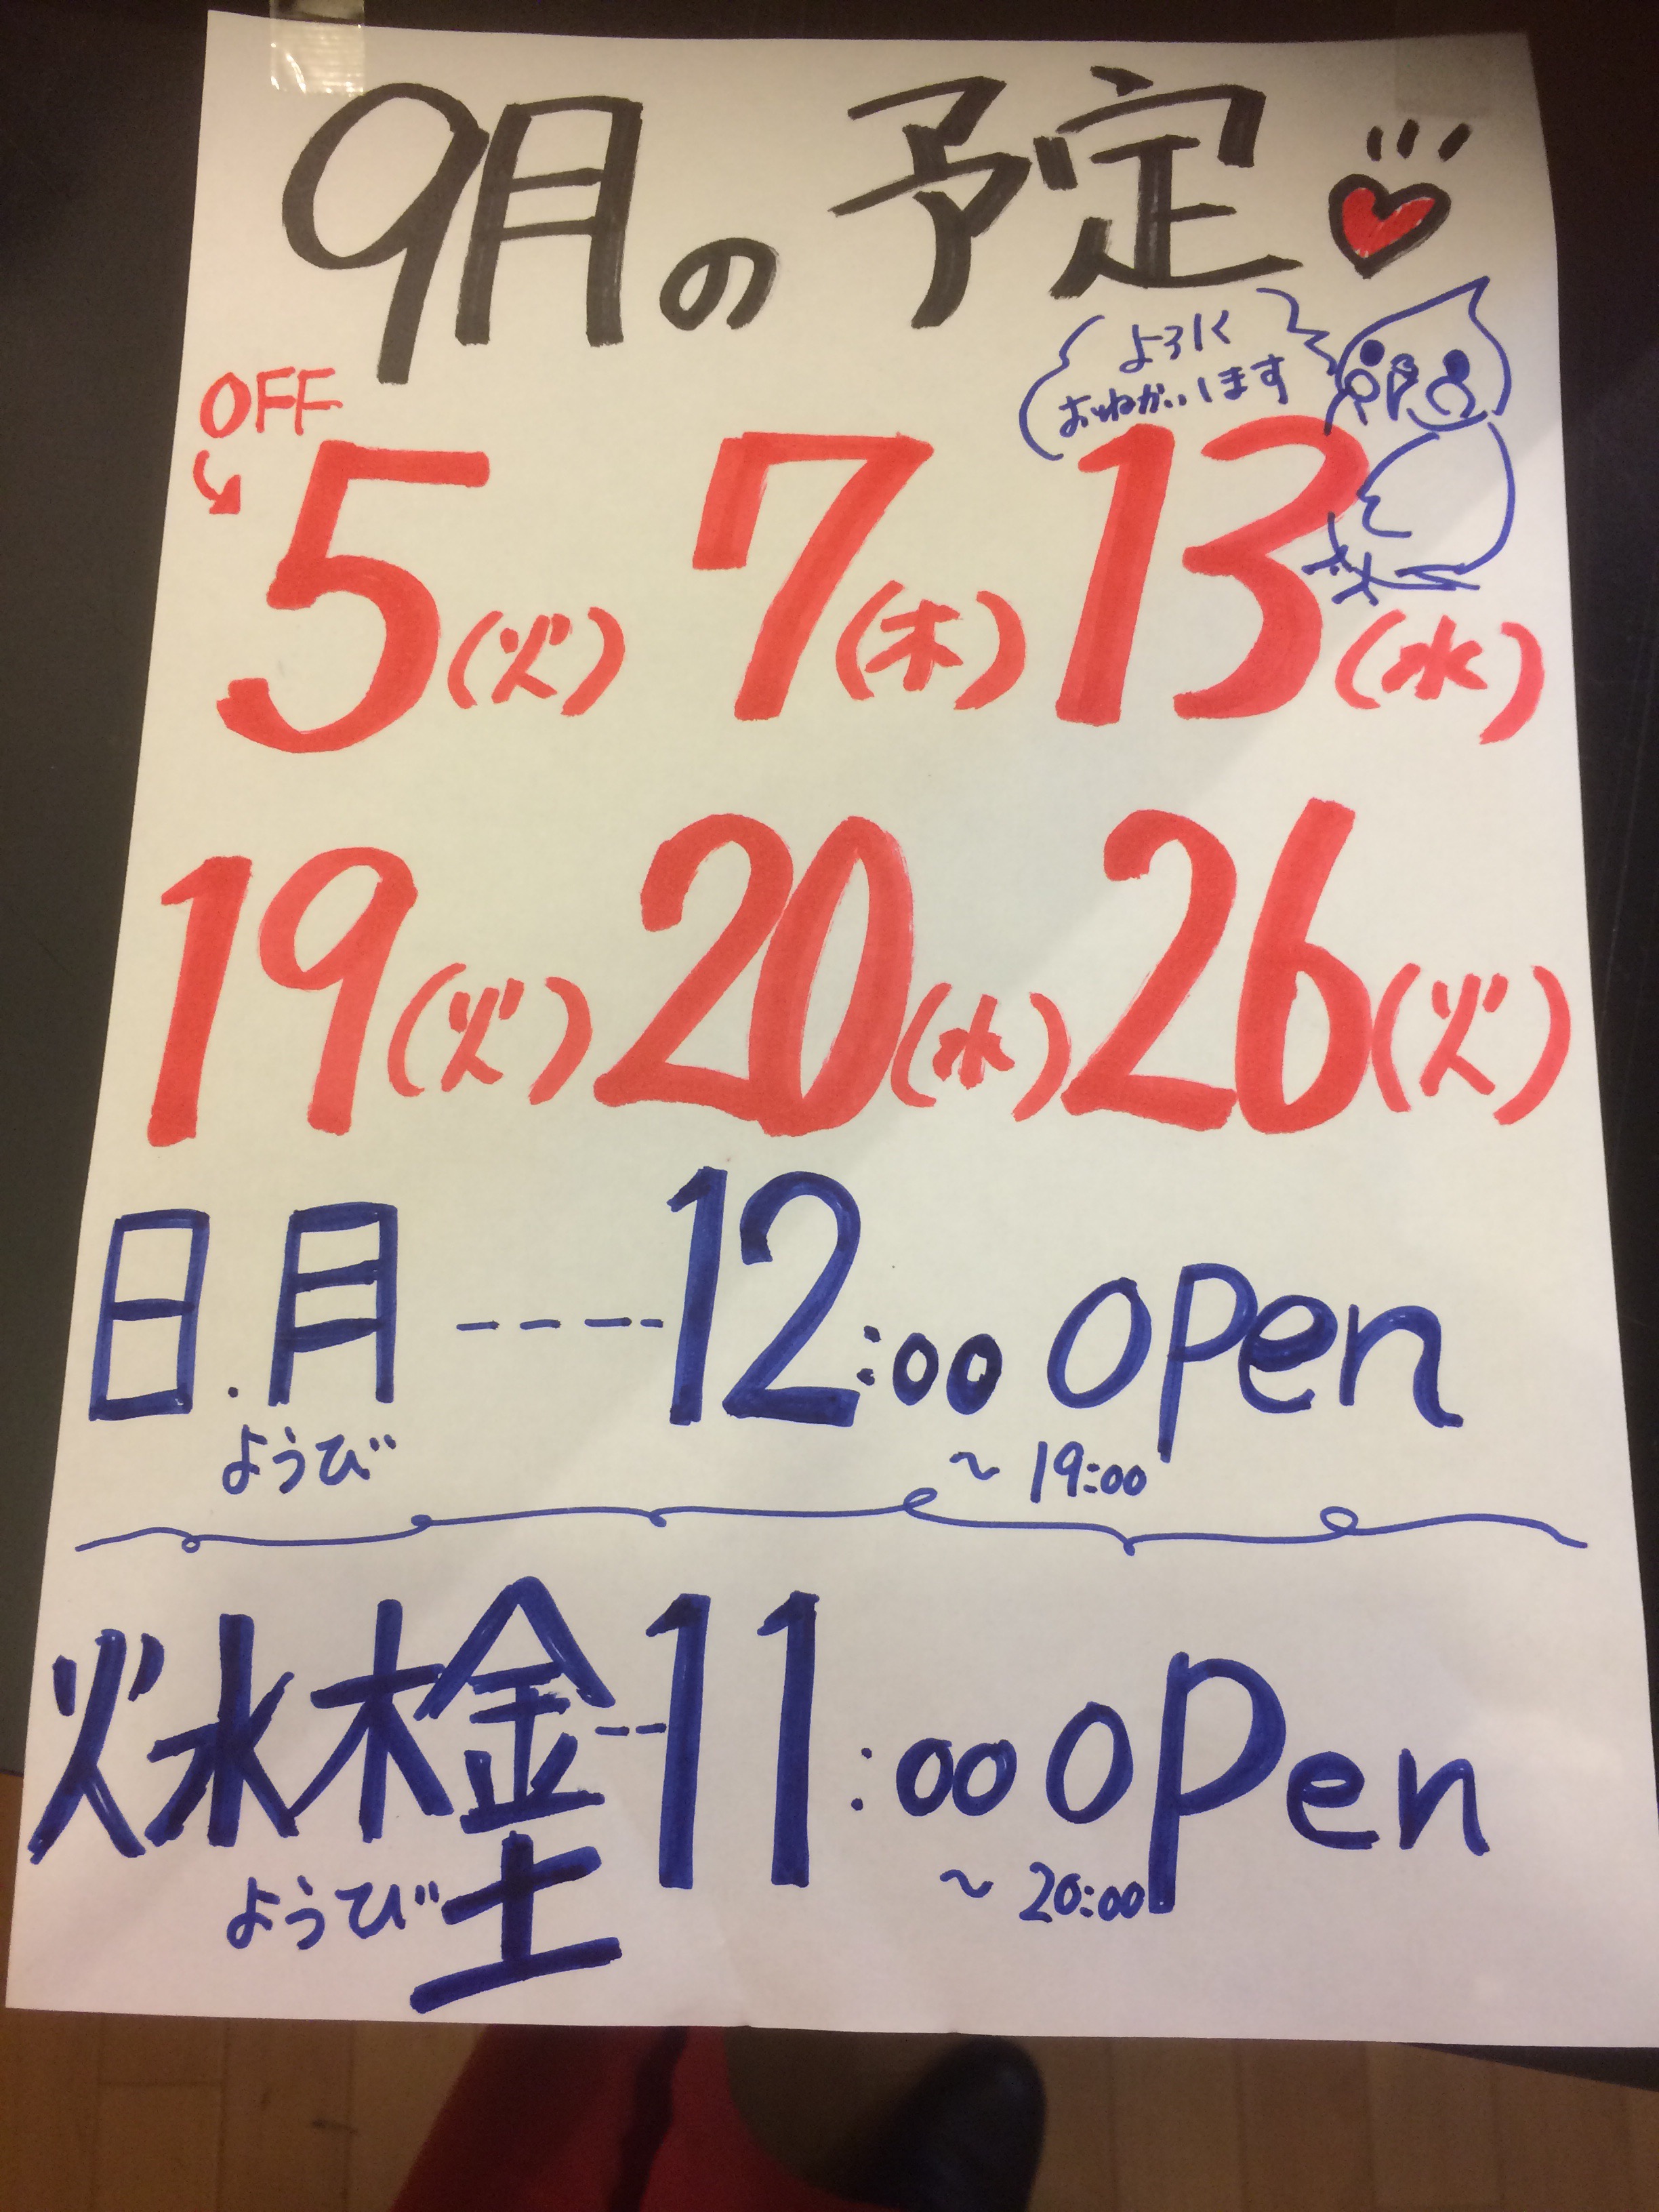 9月の予定
よろしく
おねがいします
OFF
5(火) 7(木) 13(水)
19(火) 20(水) 26(火)
日.月----12:00 open
ようび ~19:00
火水木金--11:00 open
ようび 土 ~20:00